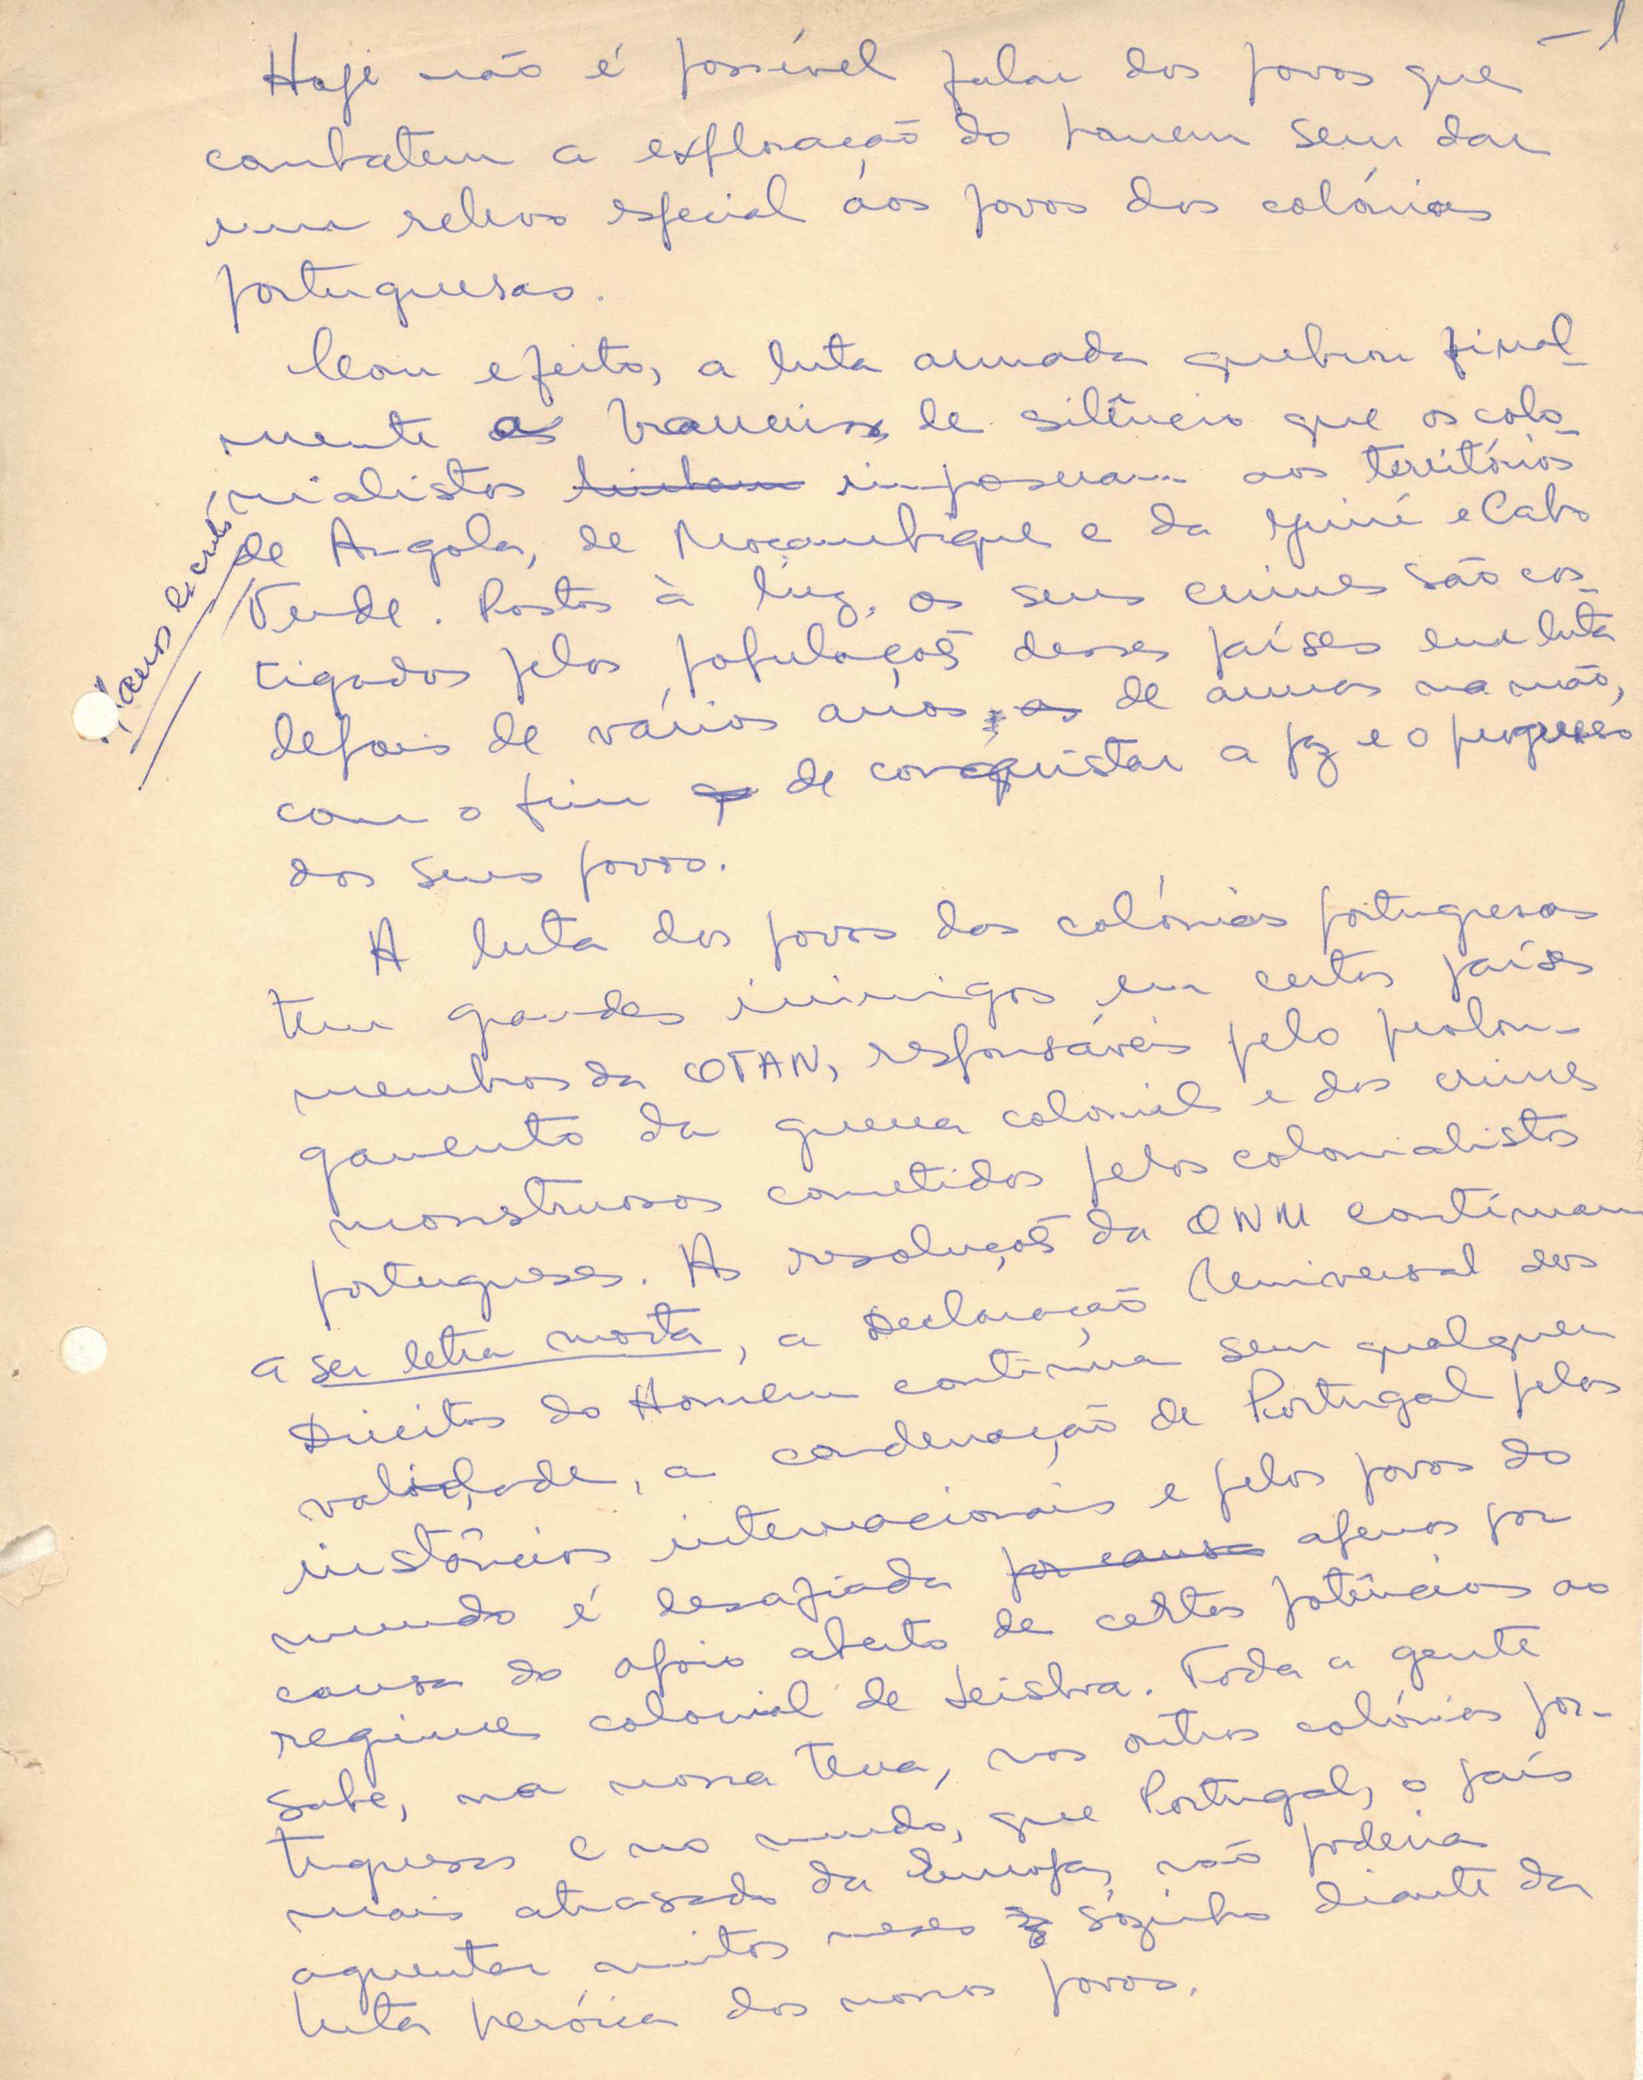 – 1
Hoje não é possível falar dos povos que
combatem a exploração do homem sem dar
um relevo especial aos povos das colónias
portuguesas.
Com efeito, a luta armada quebrou final-
mente as barreiras de silêncio que os colo-
nialistas tinham impuseram aos territórios
de Angola, de Moçambique e da Guiné e Cabo
Verde. Postos à luz, os seus crimes são cas-
tigados pelas populações desses países em luta
depois de vários anos, as de armas na mão,
com o fim de conquistar a paz e o progresso
dos seus povos.
A luta dos povos das colónias portuguesas
tem grandes inimigos em certos países
membros da OTAN, responsáveis pelo prolon-
gamento da guerra colonial e dos crimes
monstruosos cometidos pelos colonialistas
portugueses. As resoluções da ONU continuam
a ser letra morta, a Declaração Universal dos
Direitos do Homem continua sem qualquer
validade, a condenação de Portugal pelas
instâncias internacionais e pelos povos do
mundo é desafiada por causa apenas por
causa do apoio aberto de certas potências ao
regime colonial de Lisboa. Toda a gente
sabe, na nossa terra, nas outras colónias por-
tuguesas e no mundo, que Portugal, o país
mais atrasado da Europa, não poderia
aguentar muitos meses sózinho diante da
luta heróica dos nossos povos.